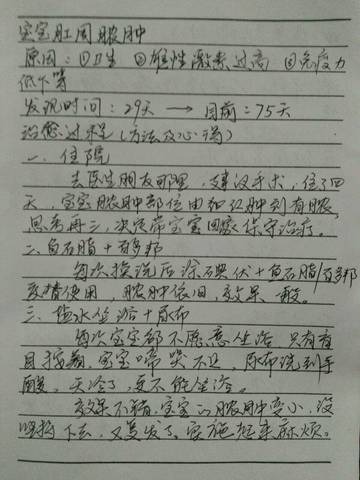 宝宝肛周脓肿
原因：①卫生 ②雄性激素过高 ③免疫力
低下等
发现时间：29天 → 目前：75天
治愈过程（方法及心得）
一、住院
去医生朋友那里，建议手术，住了四
天，宝宝脓肿部位由初红肿到有脓，
思考再三，决定带宝宝回家保守治疗。
二、鱼石脂+百多邦
每次换洗后涂碘伏+鱼石脂/百多邦
交替使用，脓肿依旧，效果一般。
三、盐水坐浴+尿布
每次宝宝都不愿意坐浴，只有夜
宝宝啼哭不止，尿布洗到手
酸，天冷了，更不能坐浴。
效果不错，宝宝的脓肿变小，没
坚持下去，又复发了，实施起来麻烦。